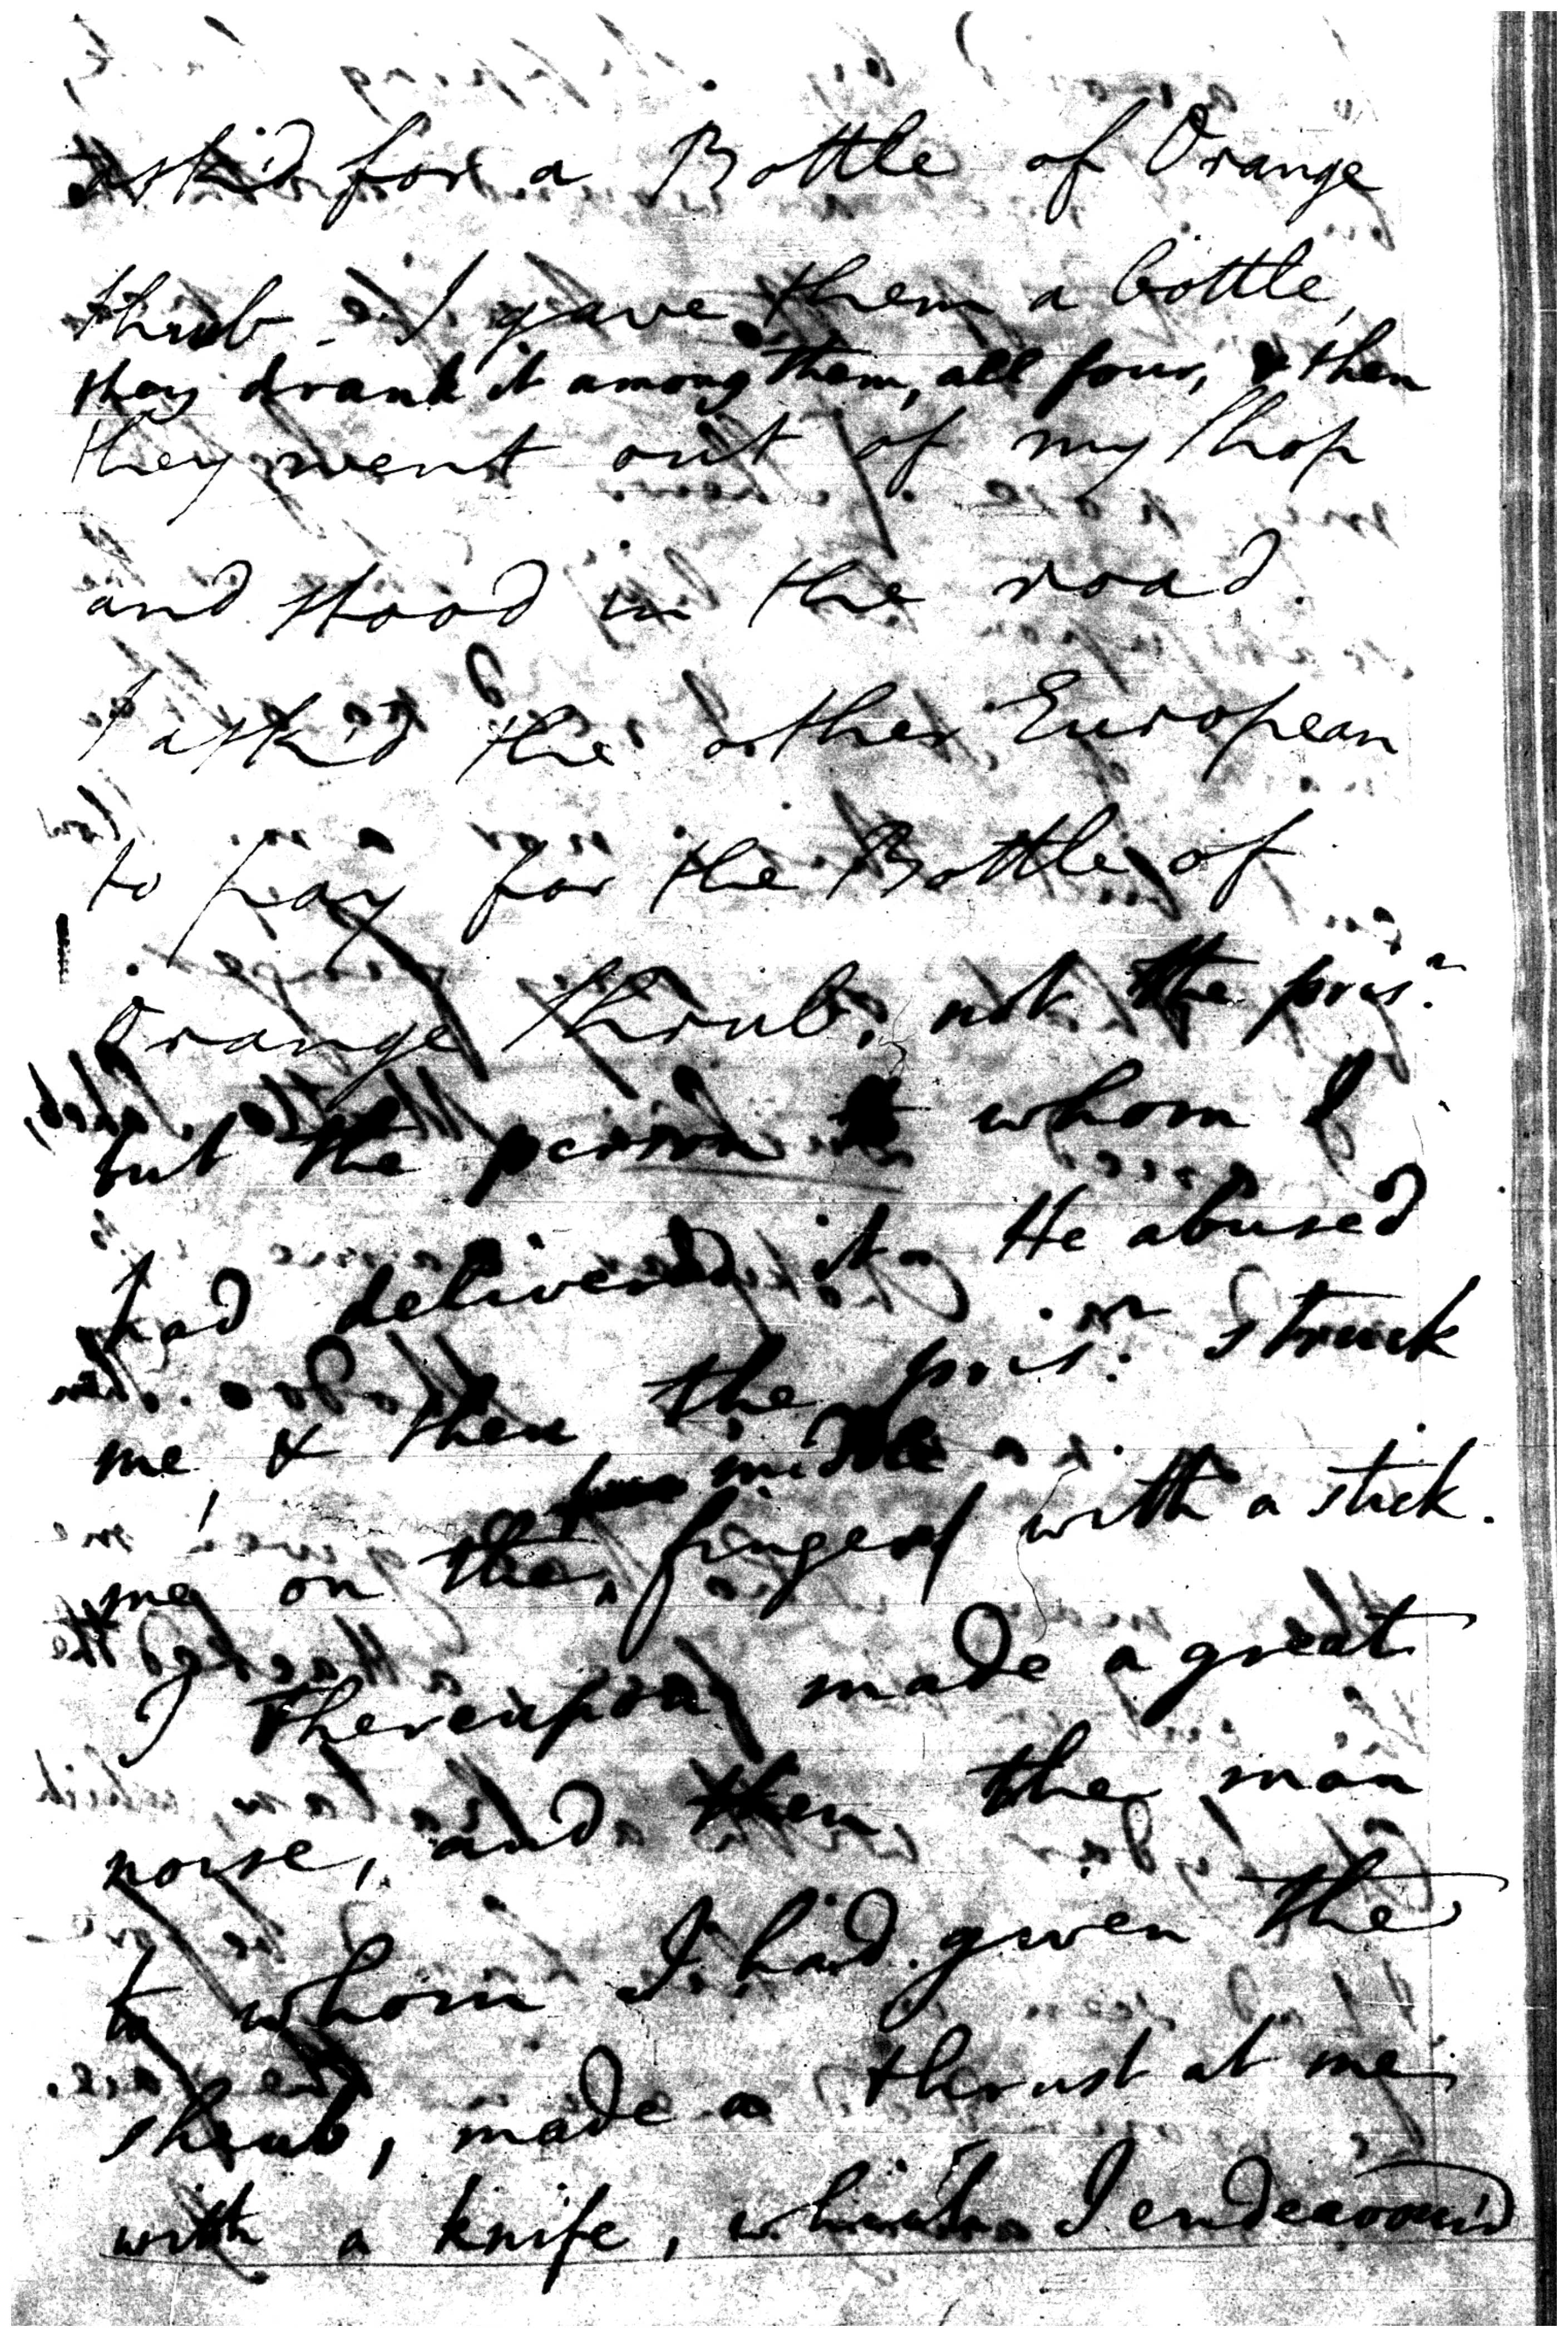 ask'd for a Bottle of Orange
shrub - I gave them a bottle,
they drank it among them, all four, & then
they went out of my Shop
and stood in the road.
I ask'd the other European
to pay for the Bottle of
Orange Shrub, not the pris.r
but the person to whom I
had delivered it - He abused
me, & then the pris.r struck
middle
me on the finger with a stick.
I thereupon made a great
noise, and then the man
to whom I had given the
shrub, made a thrust at me
with a knife, which I endeavour'd